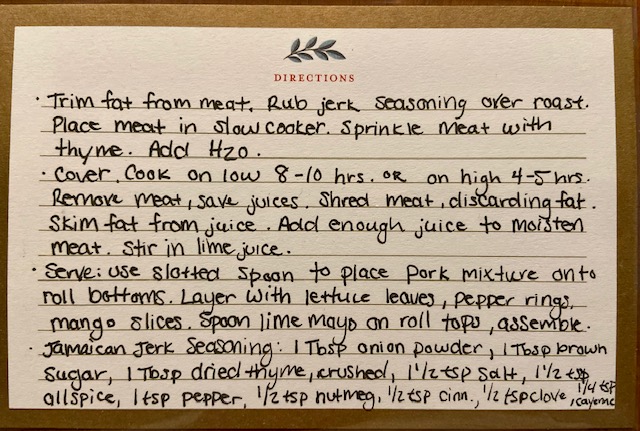 DIRECTIONS
· Trim fat from meat. Rub jerk seasoning over roast.
Place meat in slow cooker. Sprinkle meat with
thyme. Add H2O.
· Cover. Cook on low 8-10 hrs. OR on high 4-5 hrs.
Remove meat, save juices. Shred meat, discarding fat.
Skim fat from juice. Add enough juice to moisten
meat. Stir in lime juice.
· Serve: use slotted spoon to place pork mixture onto
roll bottoms. Layer with lettuce leaves, pepper rings,
mango slices. Spoon lime mayo on roll tops, assemble.
· Jamaican Jerk Seasoning: 1 Tbsp onion powder, 1 Tbsp brown
sugar, 1 Tbsp dried thyme, crushed, 1 1/2 tsp salt, 1 1/2 tsp
allspice, 1 tsp pepper, 1/2 tsp nutmeg, 1/2 tsp cinn., 1/2 tsp clove, 1/4 tsp
cayenne